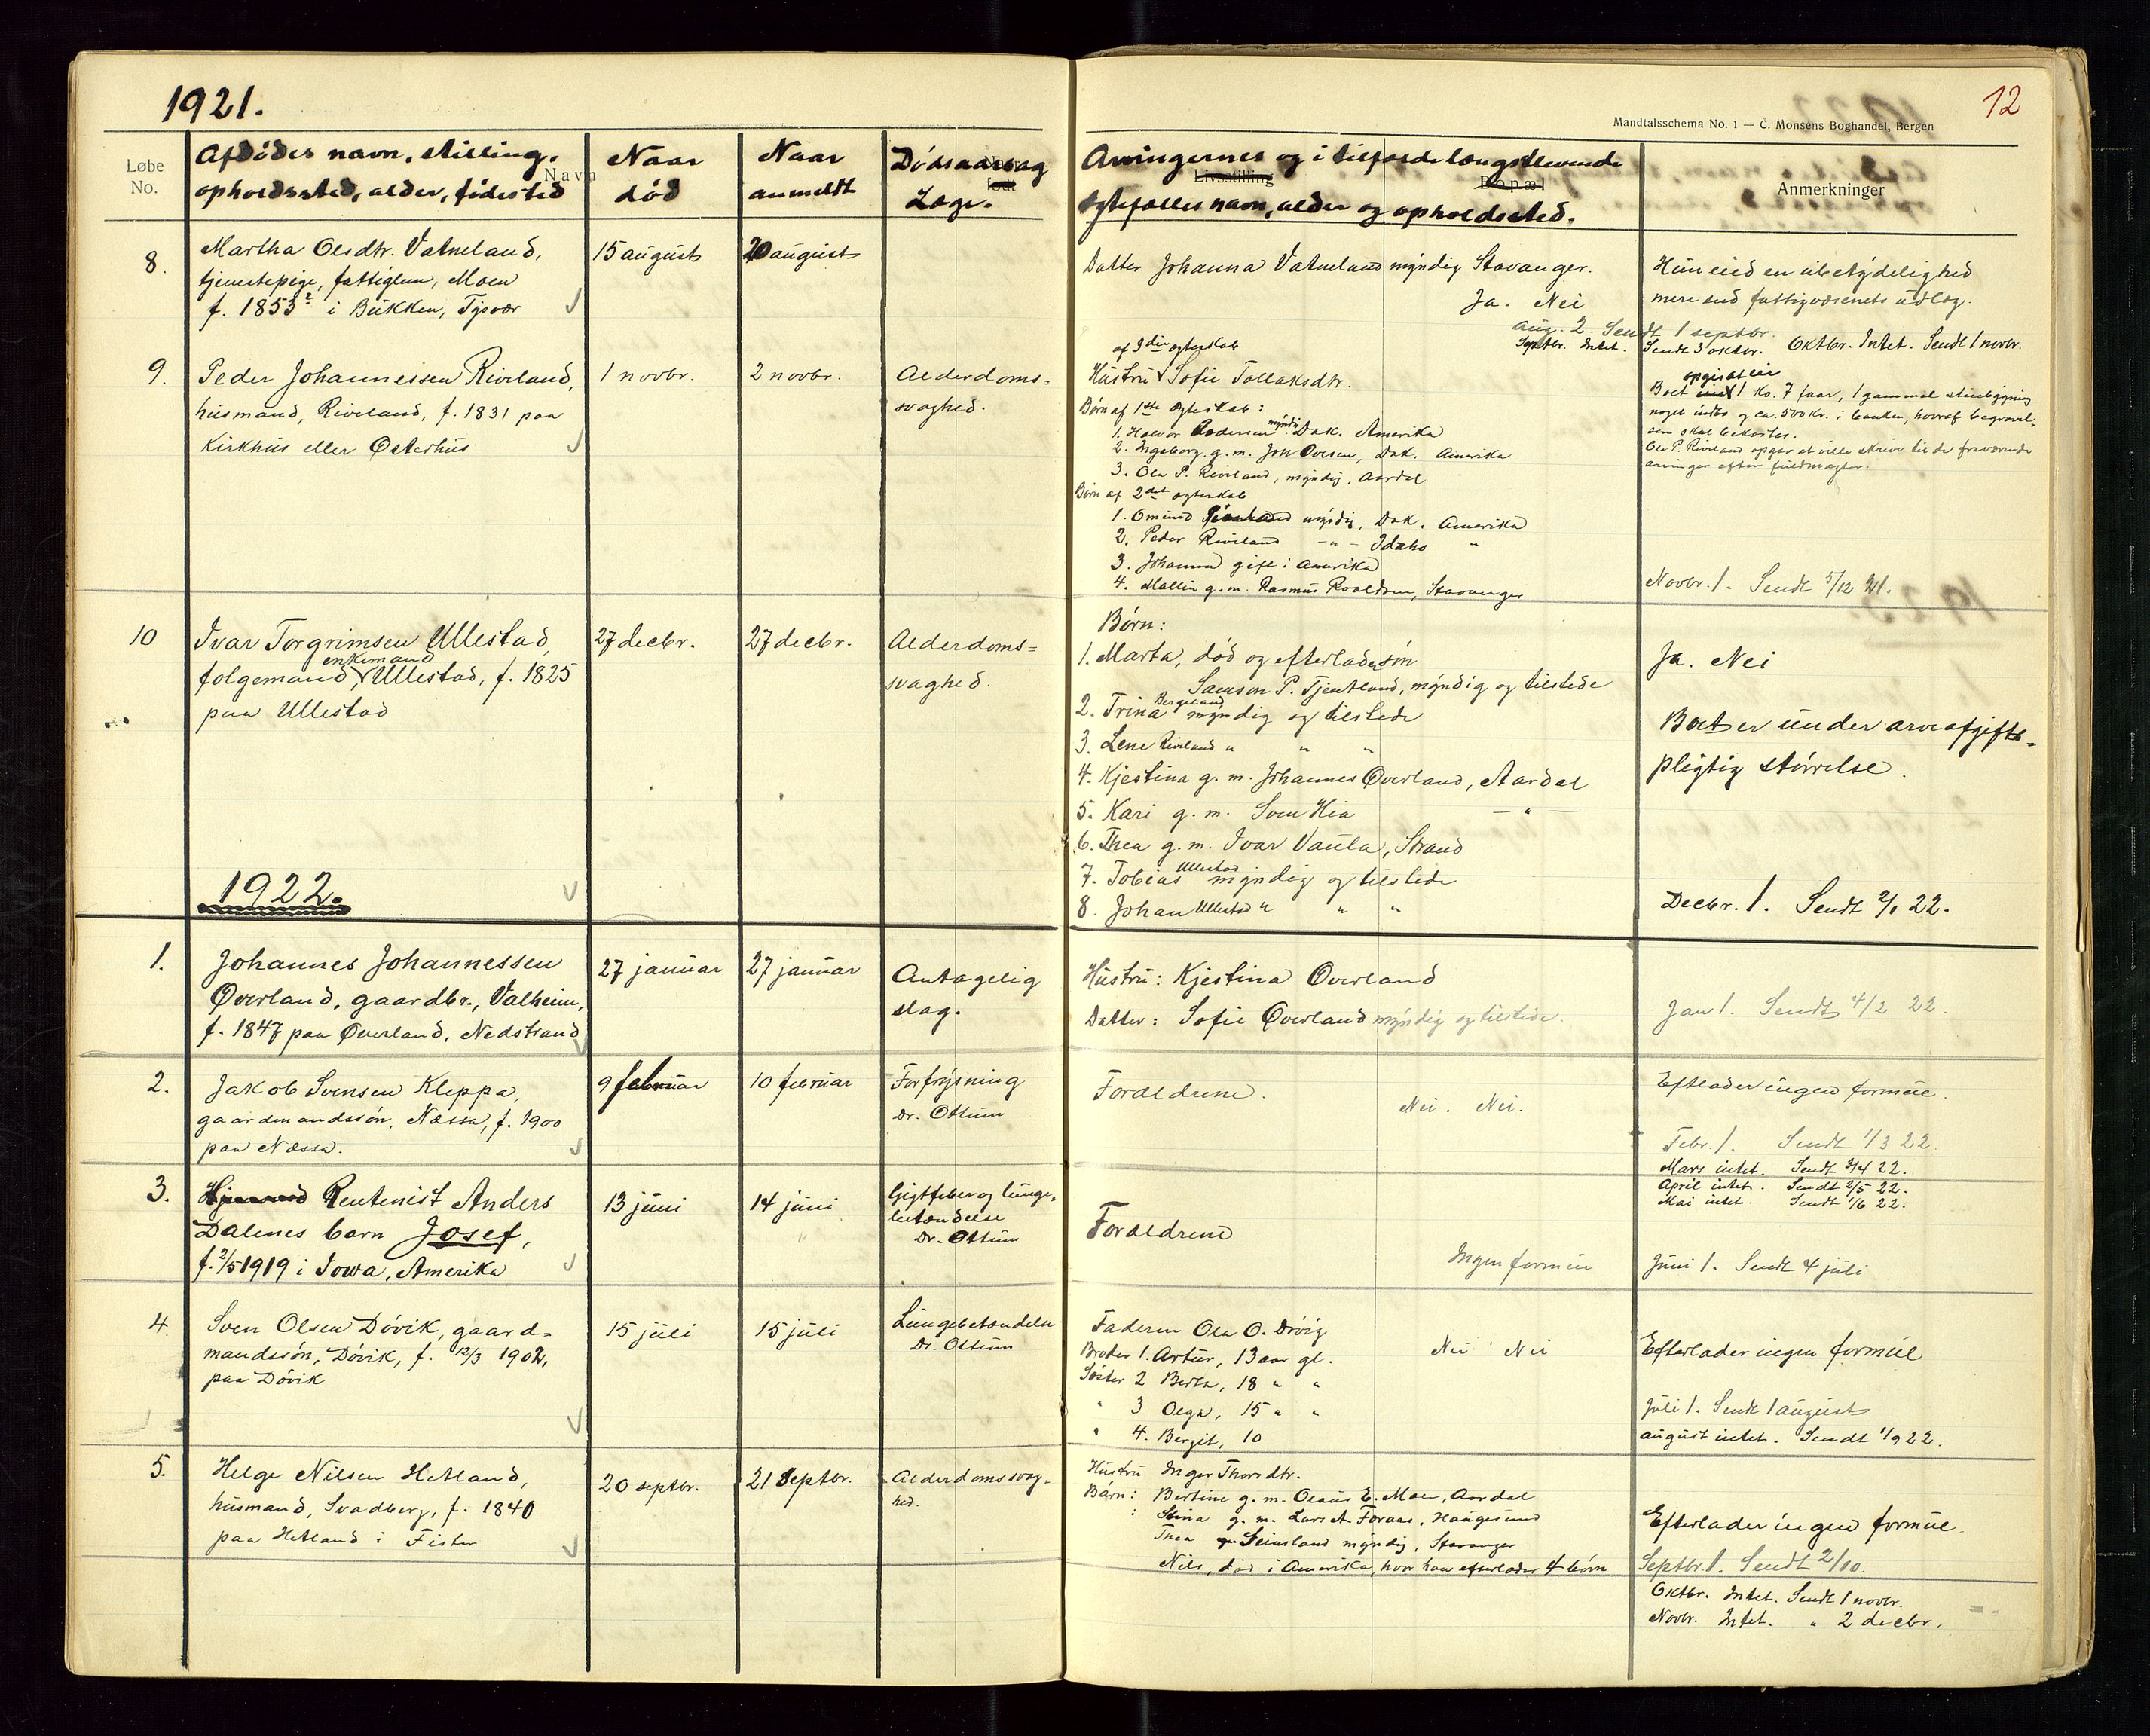 1921.
12
Mandtalsschema No. 1 — C. Monsens Boghandel, Bergen
Løbe No.
Navn
Afdødes navn, stilling,
opholdssted, alder, fødested
Naar
død
Naar
anmeldt
Dødsaarsag
Læge.
født
Arvingernes og i tilfælde længstlevende
Livsstilling
Bopæl
ægtefælles navn, alder og opholdssted.
Anmerkninger
8.
Martha Olsdtr. Vatneland,
tjenestepige, fattiglem, Moen
f. 1853 i Bukken, Tysvær
15 august
20 august
Datter Johanna Vatneland myndig Stavanger.
Ja. Nei
Hun eied en ubetydelighed
mere end fattigvæsenets udlæg.
Aug. 2. Sendt 1 septbr.
Septbr. Intet. Sendt 3 oktbr. Oktbr. Intet. Sendt 1 novbr.
9.
Peder Johannessen Riveland,
husmand, Riveland, f. 1831 paa
Kirkhus eller Østerhus
1 novbr.
2 novbr.
Alderdoms-
svaghed.
af 3die ægteskab
Hustru Sofie Tollaksdtr.
Børn af 1ste ægteskab:
1. Halvor Pedersen myndig Dak. Amerika
2. Ingeborg g. m. Jon Ovesen, Dak. Amerika
3. Ola P. Riveland, myndig, Aardal
Børn af 2det ægteskab
1. Omund Riveland myndig, Dak. Amerika
2. Peder Riveland -"- Idaho "
3. Johanna gift i Amerika
4. Mallin g. m. Rasmus Roaldsen, Stavanger
opgivet eie
Boet 1 ko. 7 faar, 1 gammel stuebygning
noget indbo og ca. 500 kr. i banken, hvoraf begravel-
sen skal bekostes.
Ola P. Riveland opgav at ville skrive til de fraværende
arvinger efter fuldmagter.
Novbr. 1. Sendt 5/12 21.
10
Ivar Torgrimsen Ullestad,
enkemand
følgemand, Ullestad, f. 1825
paa Ullestad
27 decbr.
27 decbr.
Alderdoms-
svaghed.
Børn:
1. Marta, død og efterlader søn
Samson P. Tjentland, myndig og tilstede
2. Trina Bergeland myndig og tilstede
3. Lene Riveland " " "
4. Kjestina g. m. Johannes Øverland, Aardal
5. Kari g. m. Sven Hia -"-
6. Thea g. m. Ivar Vaula, Strand
7. Tobias Ullestad myndig og tilstede
8. Johan Ullestad " " "
Ja. Nei
Boet er under arveafgifts-
pligtig størrelse.
Decbr. 1. Sendt 2/1 22.
1922.
1.
Johannes Johannessen
Øverland, gaardbr., Valheim,
f. 1847 paa Øverland, Nedstrand
27 januar
27 januar
Antagelig
slag.
Hustru: Kjestina Øverland
Datter: Sofie Øverland myndig og tilstede.
Jan 1. Sendt 4/2 22.
2.
Jakob Svensen Kleppa,
gaardmandssøn, Næssa, f. 1900
paa Næssa.
9 februar
10 februar
Forfrysning
Dr. Ottum
Forældrene.
Nei. Nei.
Eftlader ingen formue.
Febr. 1. Sendt 1/3 22.
Mars intet. Sendt 3/4 22.
April intet. Sendt 2/5 22.
Mai intet. Sendt 1/6 22.
3.
Rentenist Anders
Dalenes barn Josef,
f. 2/5 1919 i Iowa, Amerika
13 juni
14 juni
Gigtfeber og lunge-
betændelse
Dr. Ottum
Forældrene
Ingen formue
Juni 1. Sendt 4 juli
4.
Sven Olsen Døvik, gaard-
mandssøn, Døvik, f. 12/3 1902,
paa Døvik
15 juli
15 juli
Lungebetændelse
Dr. Ottum
Faderen Ola O. Døvig
Broder 1. Artur, 13 aar gl.
Søster 2 Berta, 18 " "
" 3 Olga, 15 " "
" 4. Bergit, 10
Nei Nei
Efterlader ingen formue
Juli 1. Sendt 1 august
august intet. Sendt 1/9 22.
5.
Helge Nilsen Hetland,
husmand, Svadberg, f. 1840
paa Hetland i Fister
20 septbr.
21 septbr.
Alderdomssvag-
hed.
Hustru Inger Thorsdtr.
Børn: Bertine g. m. Olaus E. Moen, Aardal
: Stina g. m. Lars A. Foraas, Haugesund
Thea Seimsland myndig, Stavanger
Nils, død i Amerika, hvor han efterlader 4 børn
Efterlader ingen formue.
Septbr. 1. Sendt 2/10.
Oktbr. Intet. Sendt 1 novbr.
Novbr. Intet. " 2 decbr.